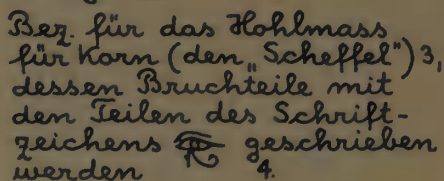 Bez. für das Hohlmass
für Korn (den „Scheffel") 3,
dessen Bruchteile mit
den Teilen des Schrift-
zeichens 𓂀 geschrieben
werden 4.